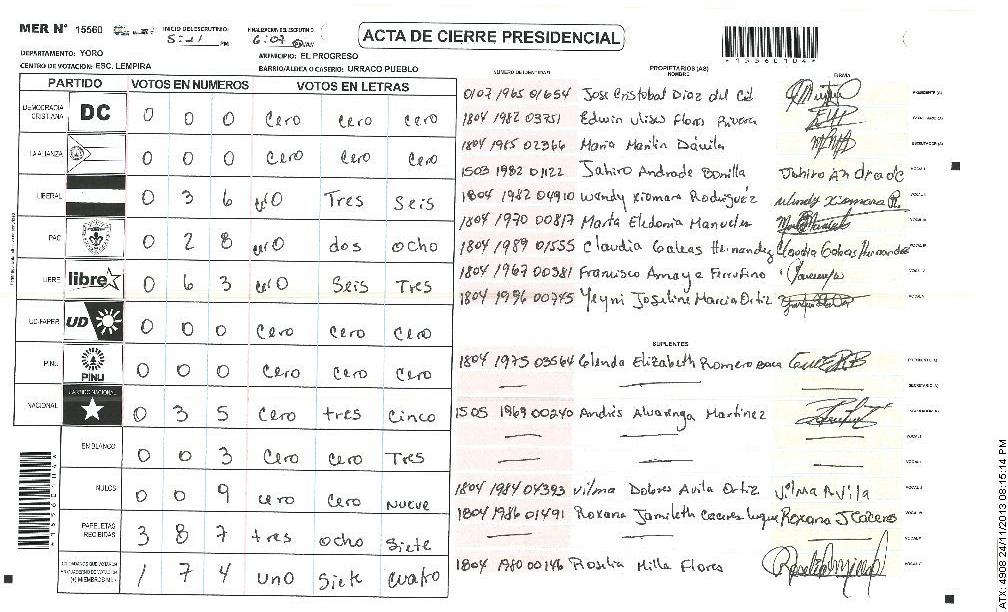 MER Nº 15560
INICIO DEL ESCRUTINIO
5:21 PM
FINALIZACION DEL ESCRUTINIO
6:07
ACTA DE CIERRE PRESIDENCIAL
*15560104*
DEPARTAMENTO: YORO
MUNICIPIO: EL PROGRESO
CENTRO DE VOTACION: ESC. LEMPIRA
BARRIO/ALDEA O CASERIO: URRACO PUEBLO
PARTIDO VOTOS EN NUMEROS VOTOS EN LETRAS
DEMOCRACIA CRISTIANA DC 0 0 0 Cero Cero Cero
LA ALIANZA 0 0 0 Cero Cero Cero
LIBERAL 0 3 6 cero Tres Seis
PAC 0 2 8 cero dos ocho
LIBRE libre 0 6 3 cero Seis Tres
UD-FAPER UD 0 0 0 Cero Cero Cero
PINU PINU 0 0 0 Cero Cero Cero
NACIONAL PARTIDO NACIONAL 0 3 5 Cero tres cinco
EN BLANCO 0 0 3 Cero Cero Tres
NULOS 0 0 9 cero Cero Nueve
PAPELETAS RECIBIDAS 3 8 7 tres ocho Siete
1 7 4 uno Siete cuatro
NUMERO DE IDENTIDAD PROPIETARIOS (AS) NOMBRE FIRMA
0107 1965 01654 Jose Cristobal Diaz del Cid PRESIDENTE (A)
1804 1982 03751 Edwin Ulises Flores Rivera SECRETARIO (A)
1804 1985 02366 Maria Marilin Dávila ESCRUTADOR (A)
1503 1982 01122 Jahiro Andrade Bonilla Jahiro Andrade
1804 1982 04910 Wendy Xiomara Rodriguez Wendy Xiomara R.
1804 1970 00817 Marta Eledonia Manueles
1804 1989 01555 Claudia Galeas Hernandez Claudia Galeas Hernandez
1804 1967 00381 Francisco Amaya Firrufino
1804 1996 00745 Yeyni Joseline Marcia Ortiz
SUPLENTES
1804 1975 03564 Glenda Elizabeth Romero Baca PRESIDENTE (A)
SECRETARIO (A)
1505 1969 00240 Andrés Alvarenga Martinez
1804 1984 04393 Vilma Dolores Avila Ortiz Vilma Avila
1804 1986 01491 Roxana Jamileth Caceres Luque Roxana J Caceres
1804 1980 00146 Roselia Milla Flores
*15560104*
ATX: 4908 24/11/2013 08:15:14 PM